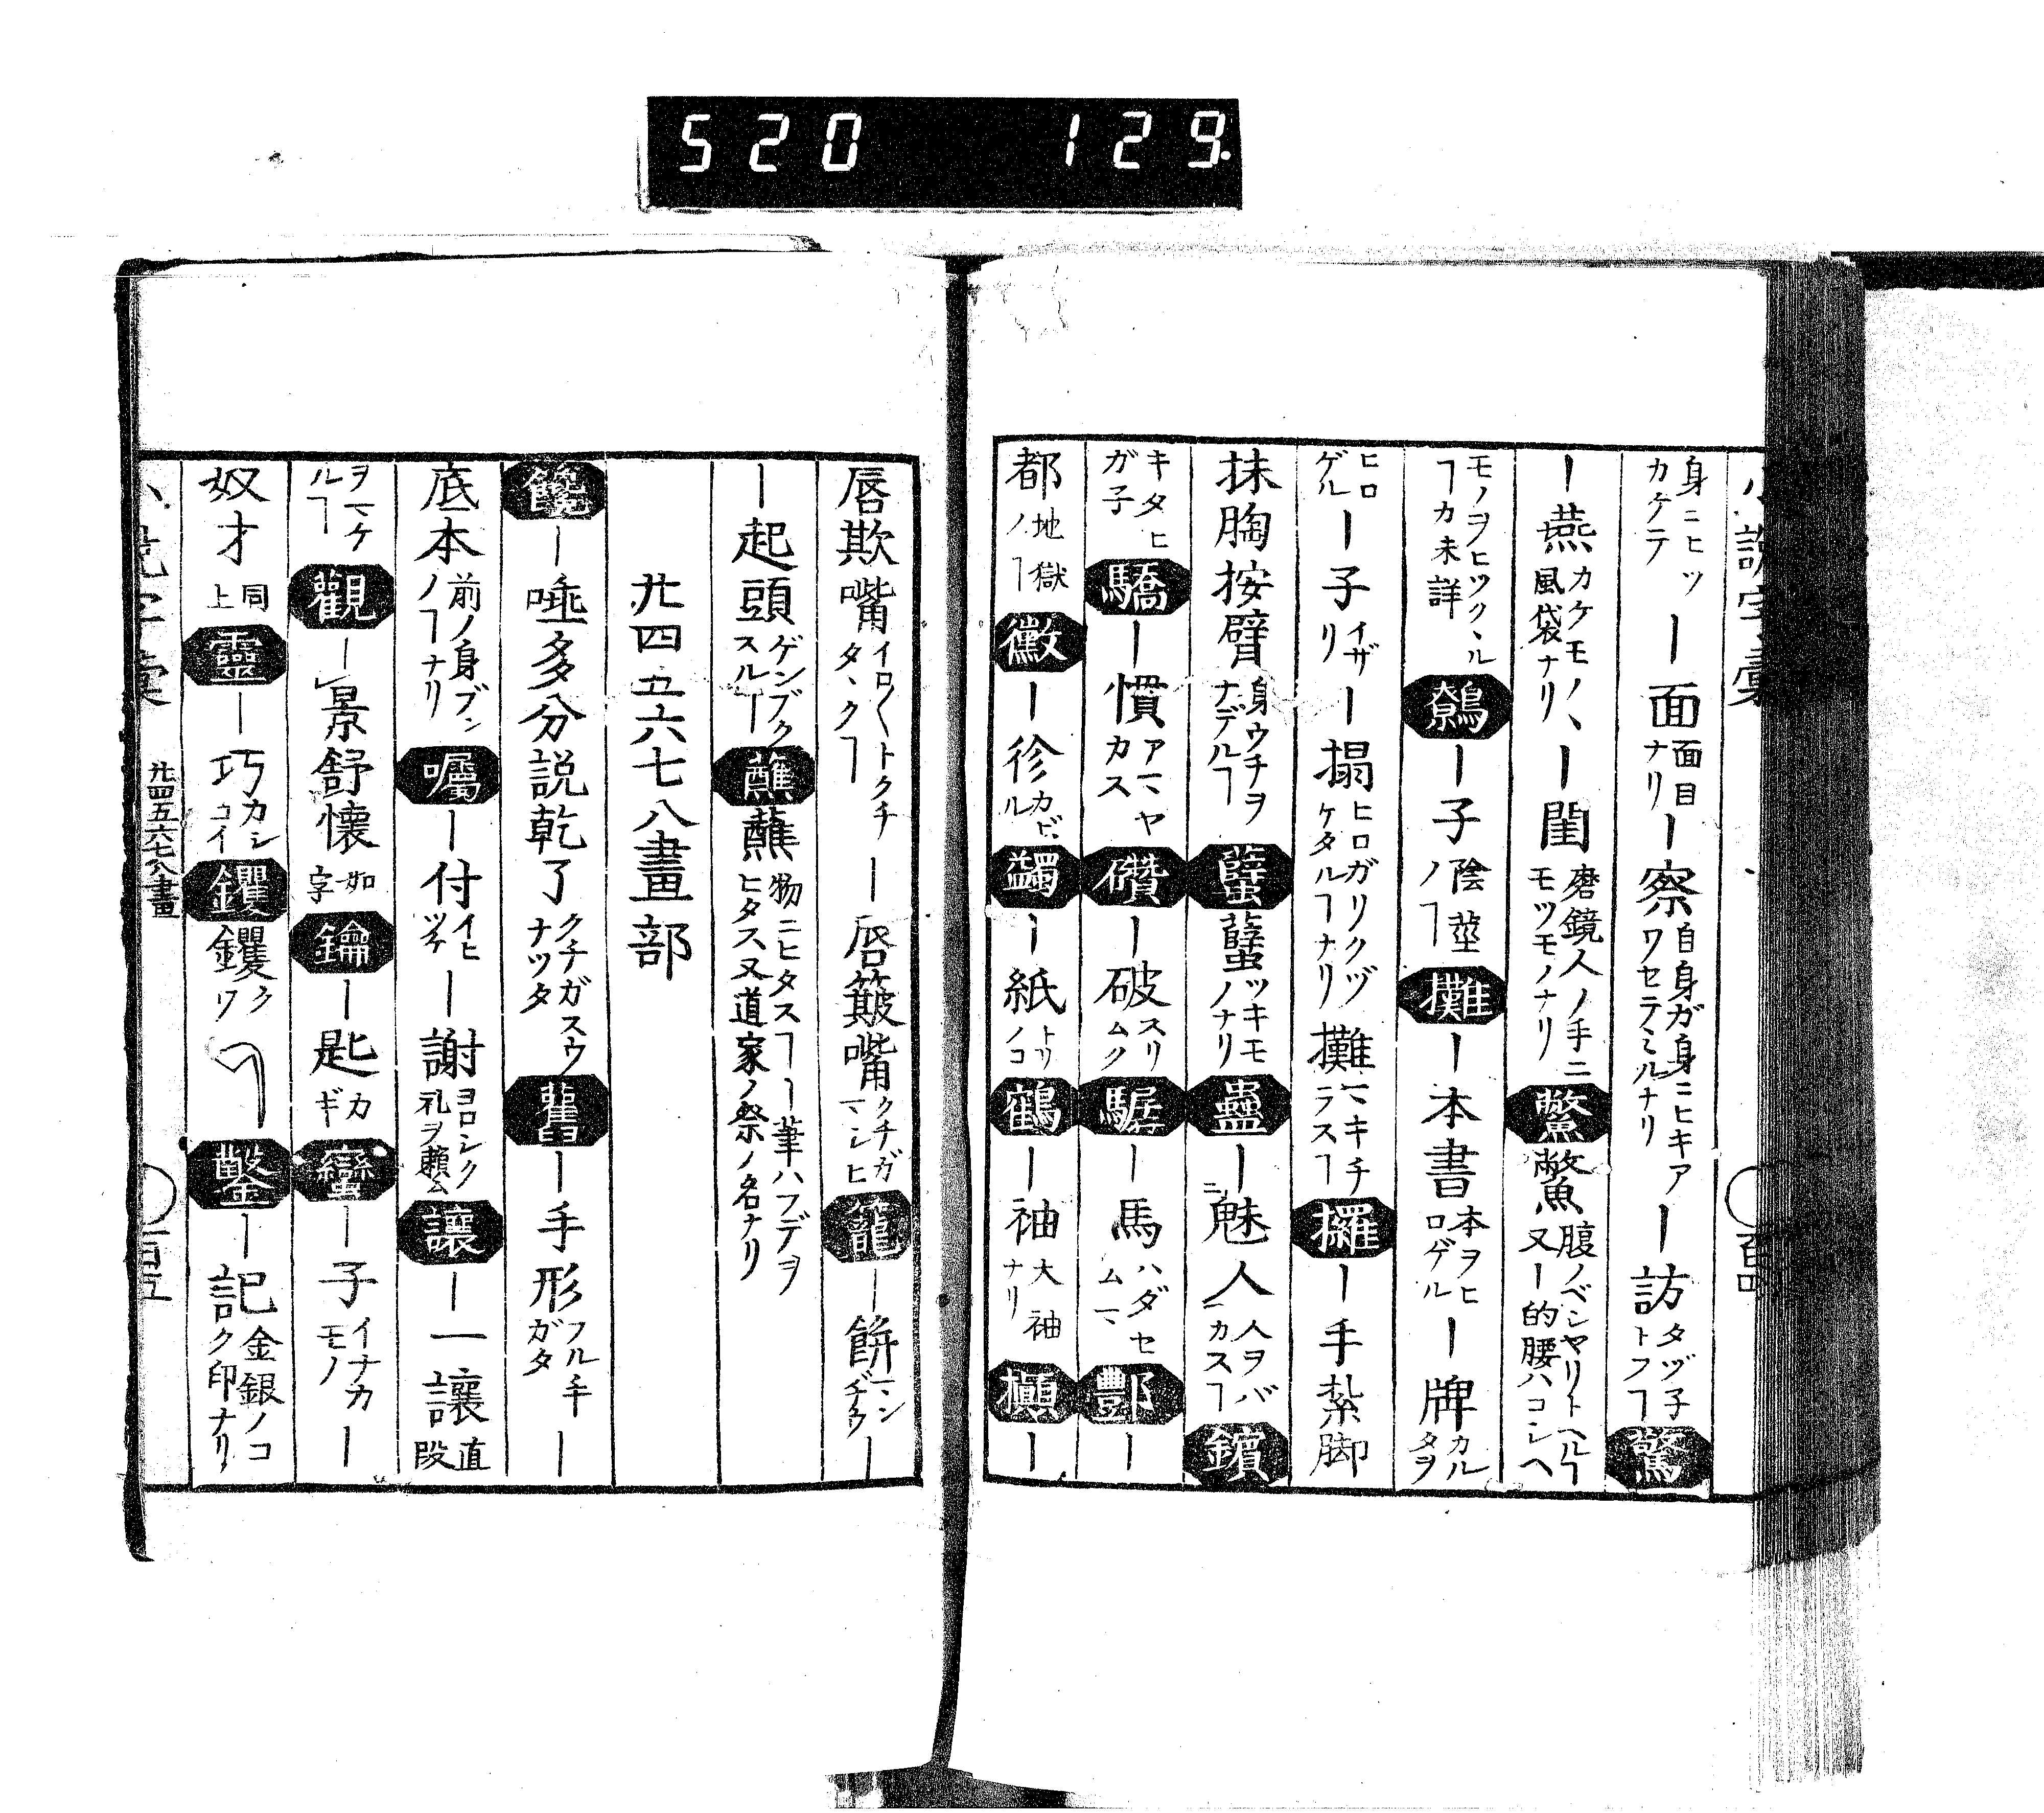 520 129
小説字彙
身ニヒツカケテ ー面 面目ナリ ー察 自身ガ身ニヒキアワセテミルナリ ー訪 タヅ子トフヿ 驚
ー燕 カケモノヽ風袋ナリ ー閨 磨鏡人ノ手ニモツモノナリ 鱉 鱉 腹ノベンヤリトヘルヿ又ー的腰ハコシヘ
モノヲヒツクヽルヿカ未詳 鷯ー子 陰莖ノヿ 攤ー本書 本ヲヒロゲル ー牌 カルタヲ
ヒロゲル ー子 イザリ ー搨 ヒロガリクヅケタルヿナリ 攤 マキチラスヿ 攞ー手紮脚
抹胸按臂 身ウチヲナデルヿ 蠥 蠥 ツキモノナリ 蠱ー魅人 人ヲバカスヿ 鑌
キタヒガ子 驕ー慣 アマヤカス 礸ー破 スリムク 驏ー馬 ハダセムマ 酆ー
都 地獄ノヿ 黴ー㣋 カビル 蠲ー紙 トリノコ 鶴ー袖 大袖ナリ 攧ー
唇欺嘴 イロ〱トクチタヽクヿ ー唇簸嘴 クチガマシヒ 籠ー餅 マンヂウ ー
ー起頭 ゲンブクスルヿ 蘸 蘸 物ニヒタスヿー筆ハフデヲヒタス又道家ノ祭ノ名ナリ
廿四五六七八畫部
ー唾多分説乾了 クチガスウナツタ 舊ー手形 フル手ガタ ー
底本 前ノ身ブンノヿナリ 囑ー付 イヒツケ ー謝 ヨロシク礼ヲ頼ム 讓ー一讓 直段
ヲマケルヿ 觀ー景舒懐 如字 鑰ー匙 カギ 蠻ー子 イナカモノ ー
奴才 同上 靈ー巧 カシコイ 钁 钁 クワ 鑿ー記 金銀ノコク印ナリ
廿四五六七八畫